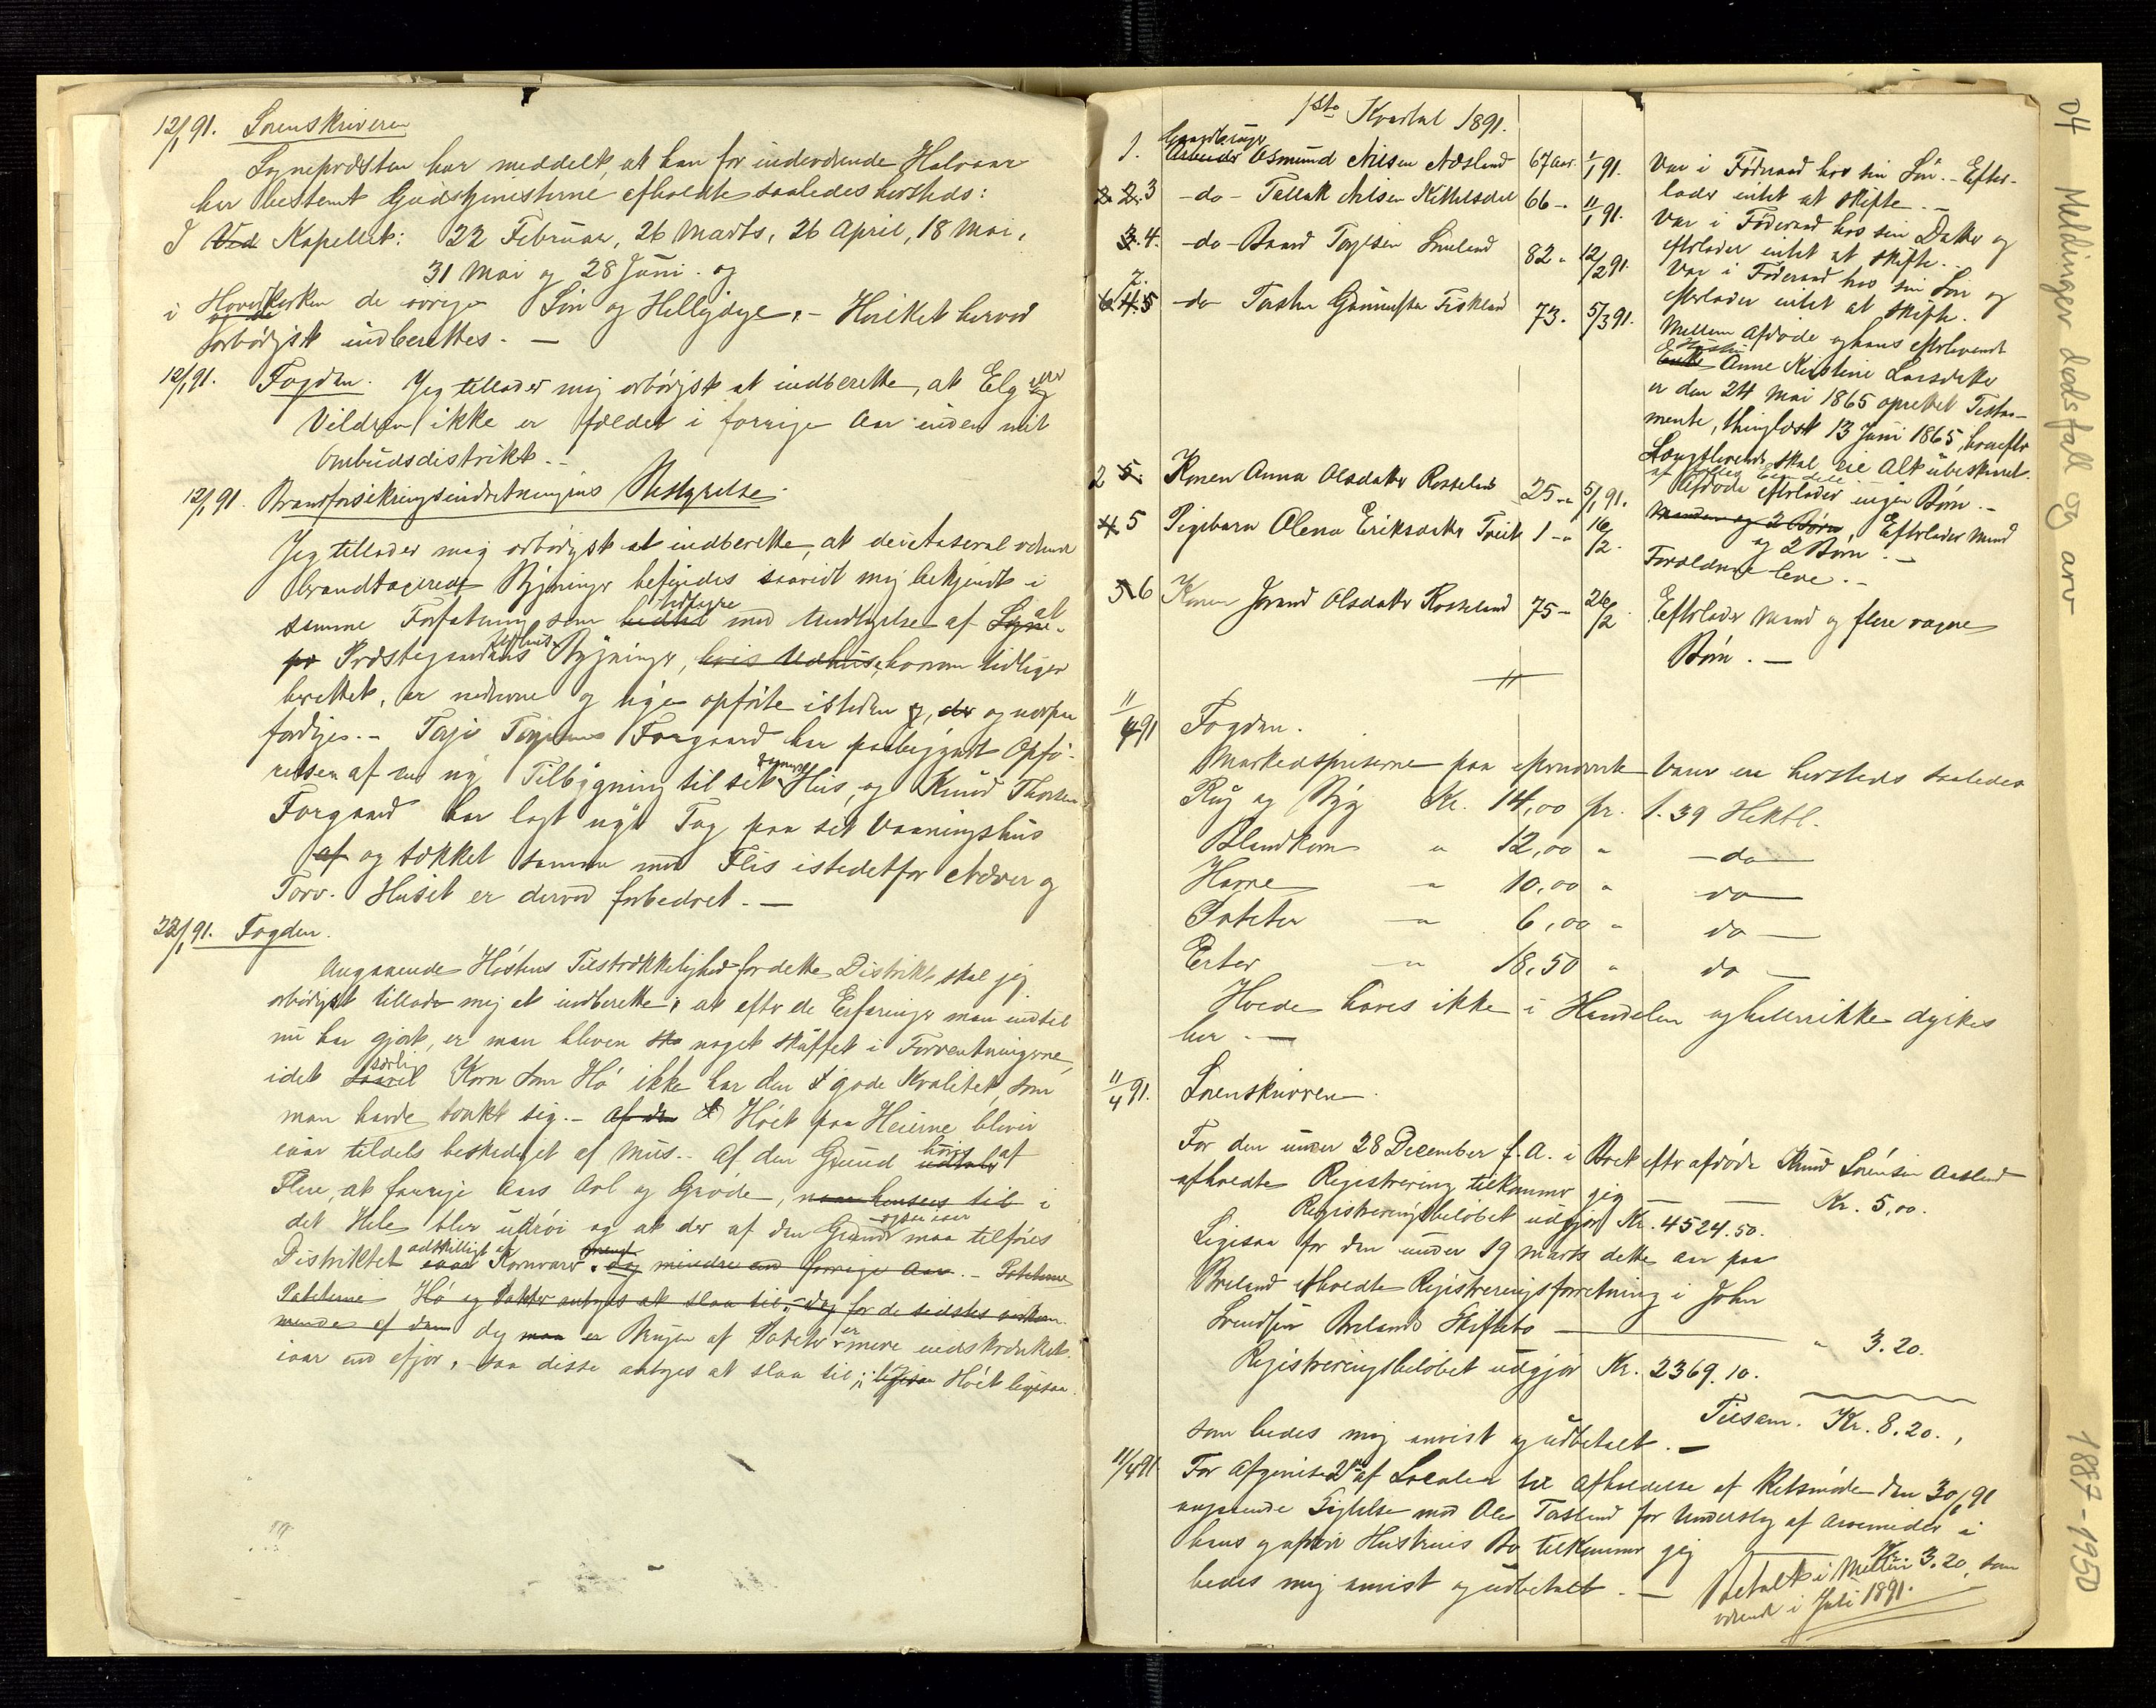 12/1 91. Sorenskriveren
Sognepræsten har meddelt, at han for indeværende Halvaar
har bestemt Gudstjenesterne afholdte saaledes hersteds:
I Ved Kapellet: 22 Februar, 26 Marts, 26 April, 18 Mai,
31 Mai og 28 Juni. og
i Hovedkirken de øvrige Søn og Helligdage, - Hvilket herved
ærbødigst indberettes. -
12/1 91. Fogden. Jeg tillader mig ærbødigst at indberette, at Elg eller
Vildren ikke er fældet i forrige Aar inden mit
Ombudsdistrikt. -
12/1 91. Brandforsikringsindretningens Bestyrelse.
Jeg tillader mig ærbødigst at indberette, at de i Aaseral værende
brandtaxerede Bygninger befindes saavidt mig bekjendt i
samme Forfatning som tidligere med Undtagelse af at
Præstegaardens Bygninger, hvis Udhuse, hvorom tidligere
berettet, er nedrevne og nye opførte isteden og, der og nærpaa
færdiges. - Terje Terjesens Forgaard har paabegyndt Opfø-
relsen af en ny Tilbygning til sit Hus, og Knud Thorsen
Forgaard har lagt nyt Tag paa sit Vaaningshus
af og tækket samme med Flis istedetfor Næver og
Torv. Huset er derved forbedret. -
22/1 91. Fogden.
Angaaende Høstens Tilstrækkelighed for dette Distrikt skal jeg
ærbødigst tillade mig at indberette, at efter de Erfaringer man indtil
nu har gjort, er man bleven noget skuffet i Forventningerne,
idet særlig Korn som Hø ikke har den gode Kvalitet, som
man havde tænkt sig. - Af den Høet paa Heierne bliver
iaar tildels beskadiget af Mus. - Af den Grund høres af
Flere, at forrige Aars Avl og Grøde, naar henses til i
det Hele blev udrøi og at der af den Grund ogsaa iaar maa tilføres
Distriktet adskilligt af Kornvarer, dog mindre end forrige Aar. - Poteterne
Poteterne Hø og Poteter antages at slaa til, - dog for de sidstes vedkom-
mende af dem dog man er Brugen af Poteter er mere indskrænket
iaar end ifjor, - saa disse antages at slaa til; ligesaa Høet ligesaa.
1ste Kvartal 1891.
1. Gaardbruger Arbeider Osmund Nilsen Aasland 67 Aar 1/1 91. Var i Føderaad hos sin Søn. - Efter-
lader intet at skifte. -
2. 2. 3 - do - Tallak Nilsen Kittelsdal 66 - 11/1 91. Var i Føderaad hos sin Datter og
efterlader intet at skifte. -
3. 4. - do - Baard Terjesen Smeland 82 - 12/2 91. Var i Føderaad hos sin Søn og
efterlader intet at skifte.
7. 6. 4. 5 - do - Torsten Gunnufsen Fiskland 73. 5/3 91. Mellem Afdøde og hans efterlevende
Enke Hustru Anne Kirstine Larsdatter
er den 24 Mai 1865 oprettet Testa-
mente, thinglæst 13 Juni 1865, hvorefter
Længstlevende skal eie Alt ubeskaaret.
Afdøde efterlader ingen Børn. -
2 5. Konen Anna Olsdatter Rosseland 25 - 5/1 91. Manden og 2 Børn, Efterlader Mand
og 2 Børn. -
4 5 Pigebarn Olena Eriksdatter Tveit 1 - 16/2. Forældrene leve. -
5 6 Konen Jorand Olsdatter Rosseland 75 - 26/2. Efterlader Mand og flere voxne
Børn. -
11/4 91 Fogden.
Markedspriserne paa efternævnte Varer ere hersteds saaledes
Rug og Byg Kr. 14,00 pr. 1.39 Hektl.
Blandkorn " 12,00 " - do -
Havre " 10,00 " do -
Poteter " 6,00 " do -
Erter " 18,50 " do -
Hvede haves ikke i Handelen og heller ikke dyrkes
her. -
11/4 91. Sorenskriveren.
For den under 28 December f. A. i Boet efter afdøde Knud Sørensen Aasland
afholdte Registrering tilkommer jeg - - Kr. 5,00.
Registreringsbeløbet udgjør Kr. 4524.50.
Ligesaa for den under 19 Marts dette Aar paa
Breland afholdte Registreringsforretning i John
Svendsen Brelands Skiftebo - " 3.20.
Registreringsbeløbet udgjør Kr. 2369.10.
Tilsam. Kr. 8.20.,
som bedes mig anvist og udbetalt. -
11/4 91 For Afgivelse af Locale til Afholdelse af Retsmøde den 30/1 91
angaaende Sigtelse mod Ole Torsland for Underslag af Arvemidler i
hans og afdøde Hustrues Bo tilkommer jeg Kr. 3.20, som
bedes mig anvist og udbetalt. - Betalt i Mellem
værende i Juli 1891.
04 Meldinger dødsfall og arv 1887-1950